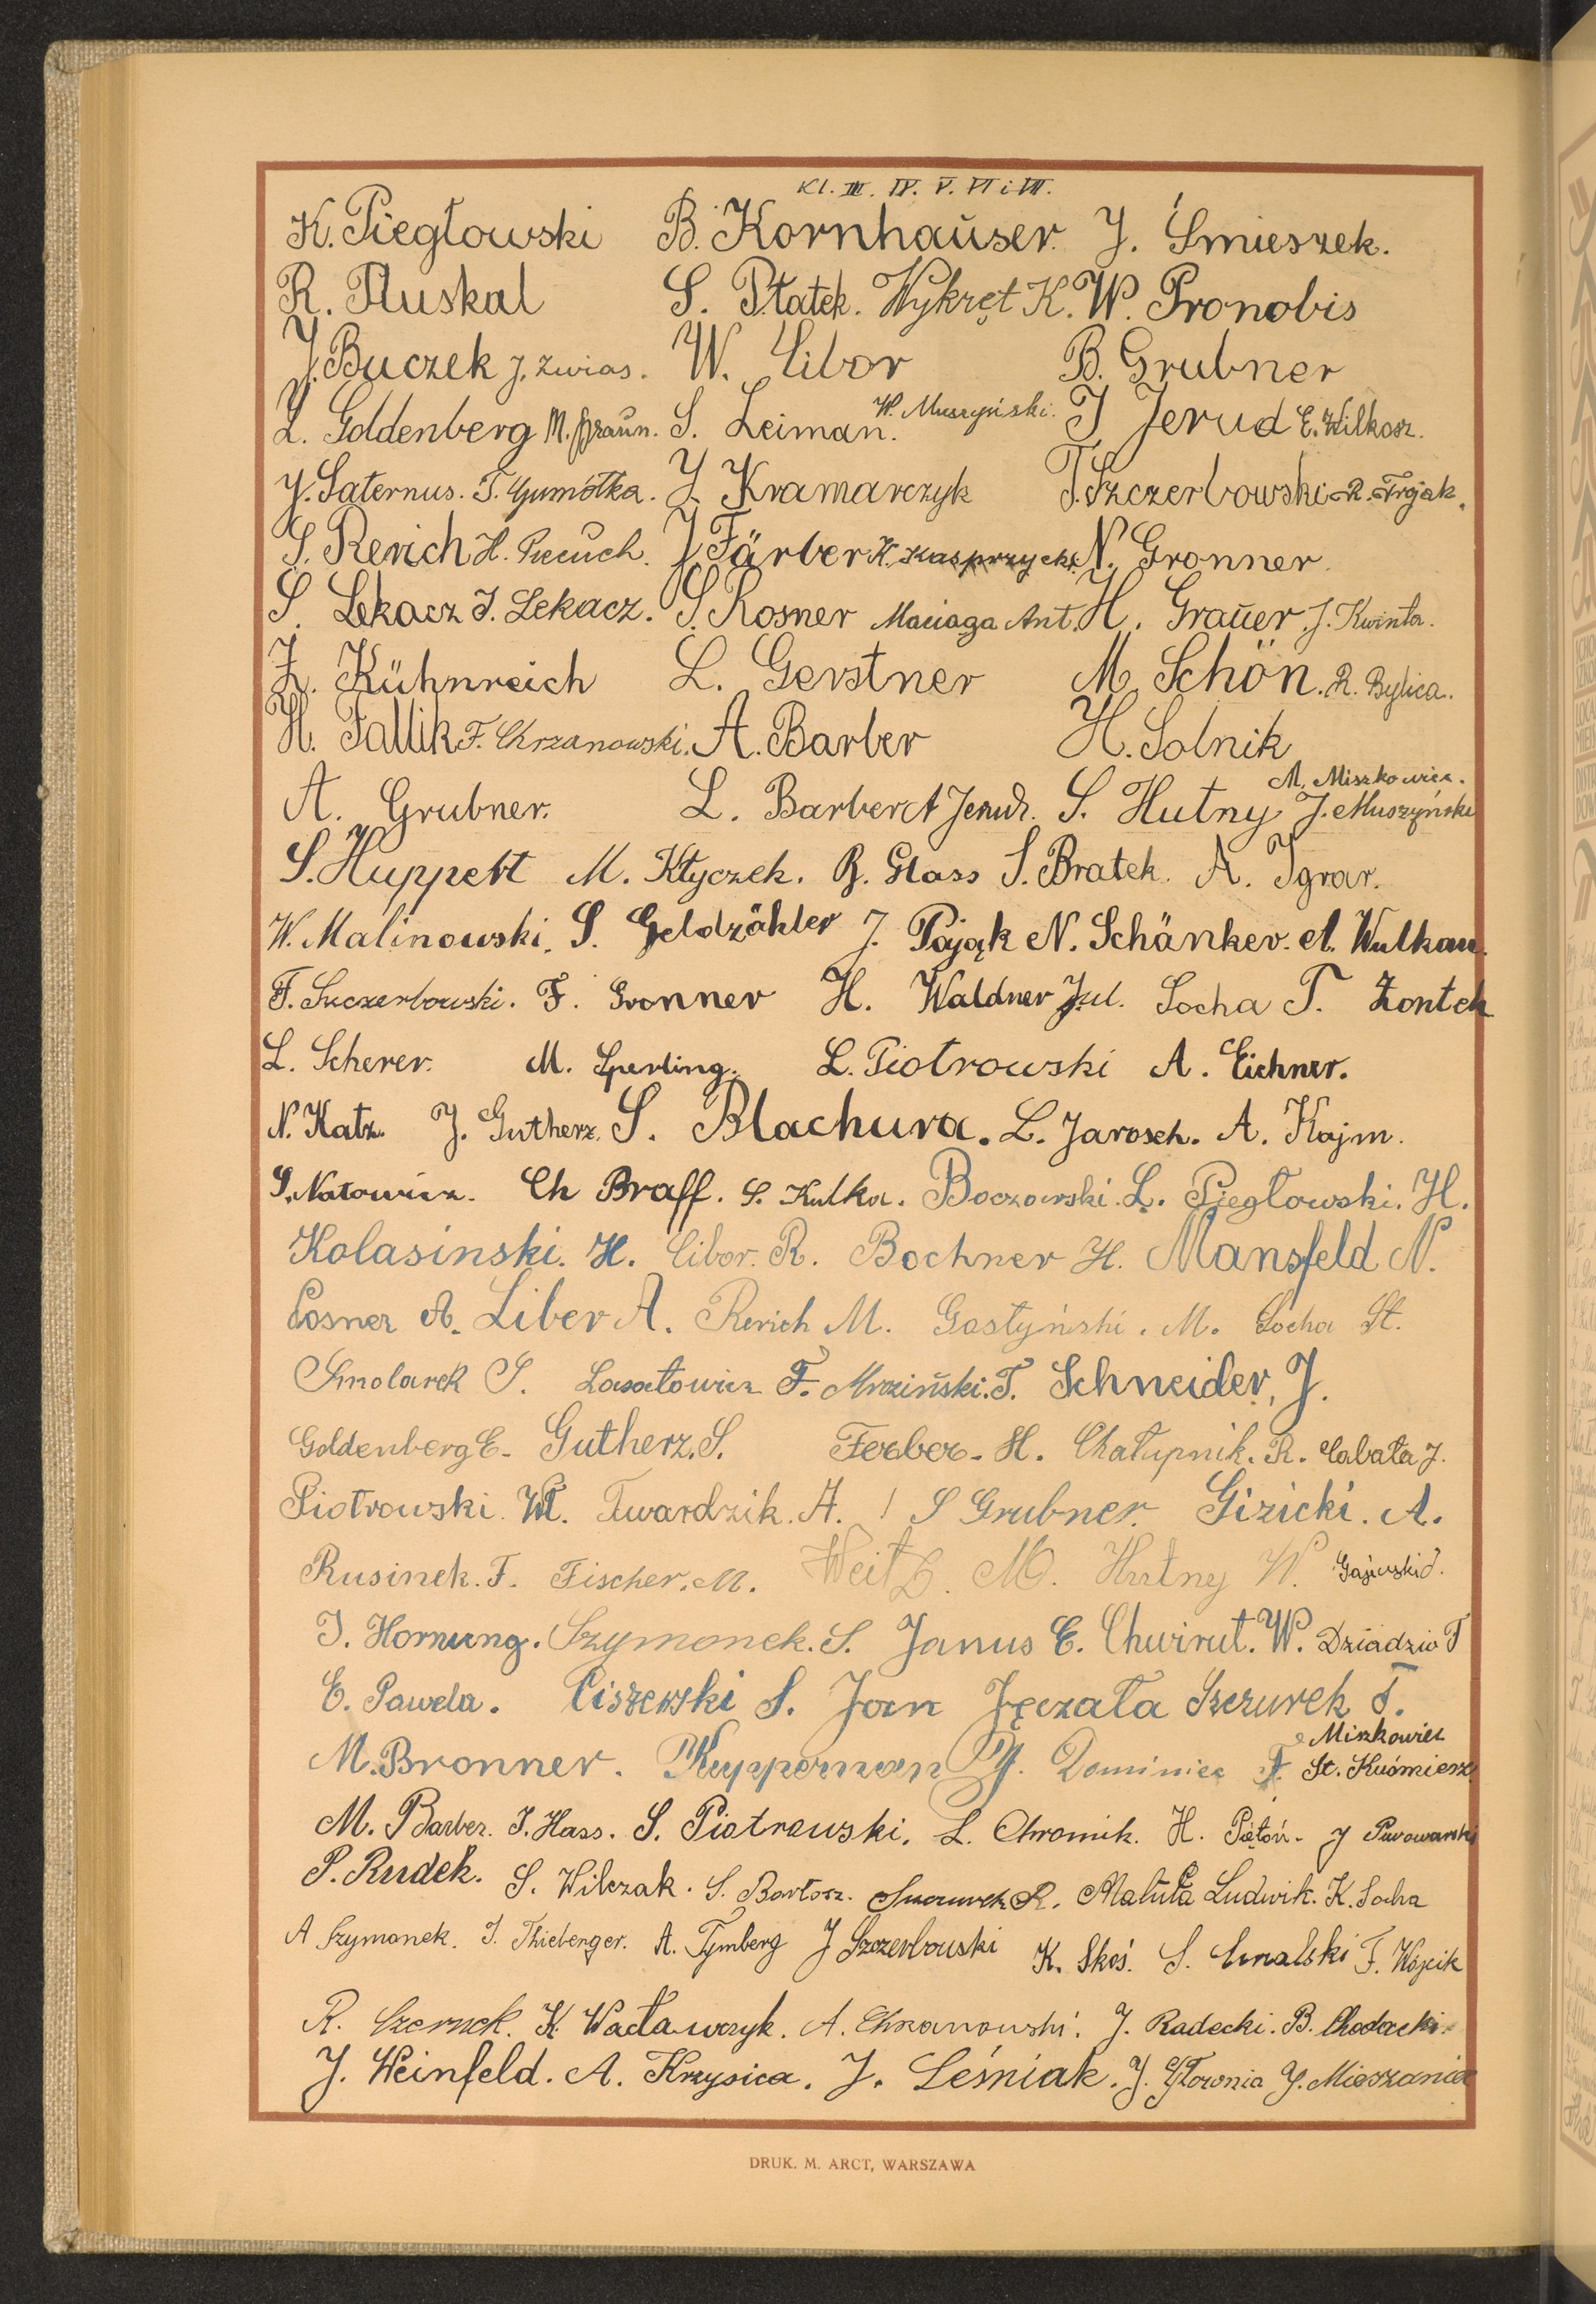 Kl. III. IV. V. VI i VII.
K. Piegłowski B. Kornhaŭser. J. Śmieszek.
R. Pluskal S. Płatek. Wykręt K. W. Pronobis
J. Buczek J. Zwias. W. Libor B. Grubner
L. Goldenberg M. Braŭn. S. Leiman. W. Muszyński. J Jerud E. Wilkosz.
J. Saternus. T. Gumółka. J. Kramarczyk T. Szczerbowski R. Frjak.
S. Rerich H. Piecuch. J. Färber K. Kasprzycki N. Gronner.
S. Lekacz J. Lekacz. S. Rosner Maciaga Ant. H. Graŭer J. Kwinta.
Z. Kühnreich L. Gerstner M. Schön. R. Bylica.
H. Fallik F. Chrzanowski. A. Barber H. Solnik
A. Grubner. L. Barber A Jerud. S. Hutny M. Miszkowiec. J. Muszyński
S. Huppert M. Kłyczek. R. Glass S. Bratek. A. Igrar.
W. Malinowski. S. Geldzähler J. Pająk N. Schänker. A. Wulkan.
F. Szczerbowski. F. Gronner H. Waldner Jul. Socha T. Żontek
L. Scherer. M. Sperling. L. Piotrowski A. Eichner.
N. Katz. J. Gutherz. S. Blachura. L. Jarosch. A. Kajm.
S. Natowicz. Ch Braff. S. Kulka. Boczowski. L. Piegłowski. H.
Kolasinski. H. Cibor. R. Bochner H. Mansfeld N.
Posner A. Liber A. Rerich M. Gostyński. M. Socha St.
Smolarek S. Lasatowicz F. Mroziński. T. Schneider, J.
Goldenberg E. Gutherz. S. Ferber. H. Chałupnik. R. Cabała J.
Piotrowski. Wł. Twardzik. A. S Grubner. Gizicki. A.
Rusinek. F. Fischer. M. Weitz. M. Hutny W. Gajewski J.
J. Hornung. Szymonek. S. Janus E. Chwirut. W. Dziadzio T
E. Pawela. Ciszewski S. Jan Jęczała Szczurek T.
M. Bronner. Kupperman Dominiec F. Miszkowiec St. Kuśmierz
M. Barber. J. Hass. S. Piotrowski. L. Chromik. H. Piętoń. J Piwowarski
P. Rudek. S. Wilczak. S. Bartosz. Szczurek R. Matuła Ludwik. K. Socha
A Szymonek. J. Thieberger. A. Tymberg J Szczerbowski K. Skoś. S. Smalski F. Wójcik
R. Czernek. K. Wacławczyk. A. Chrzanowski. J. Radecki. B. Chodacki.
J. Weinfeld. A. Krzysica. J. Leśniak. J. Głownia J. Mieszaniec
DRUK. M. ARCT, WARSZAWA